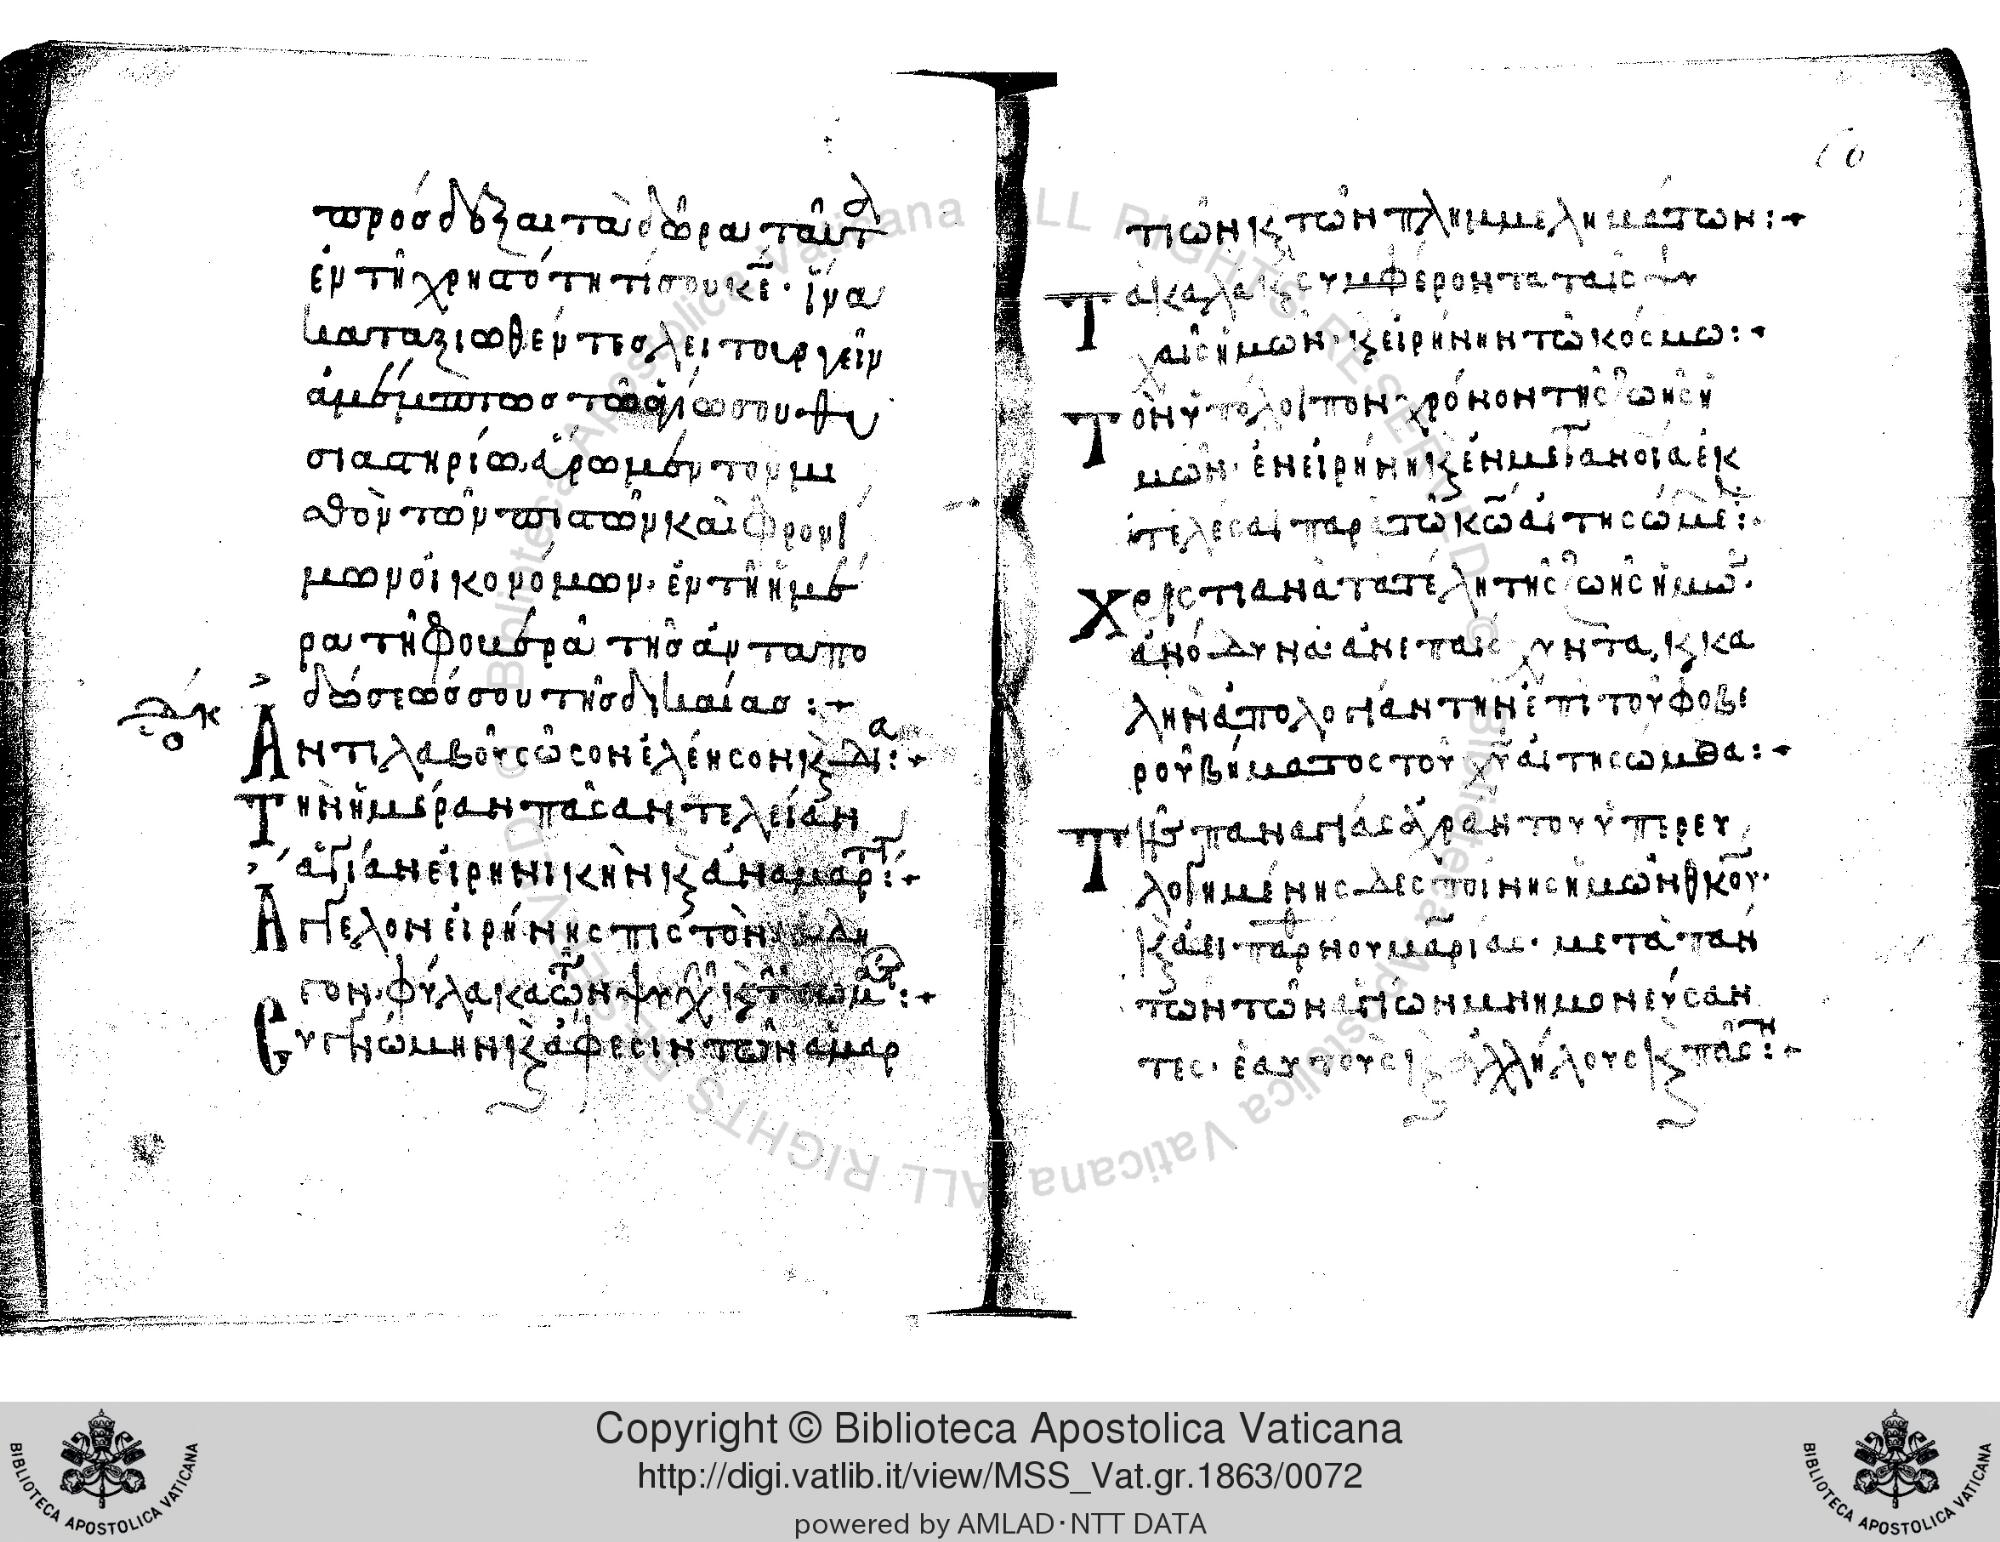 πρόσδεξαι τὰ δῶρα ταῦτ
ἐν τῇ χρηστότητί σου κε̅· ἵνα
καταξιωθέντες λειτουργεῖν
ἀμέμπτως τῷ ἁγίω σου θυ
σιαστηρίω, εὕρωμεν τὸν μι
σθὸν τῶν πιστῶν καὶ φρονί
μων οἰκονόμων· ἐν τῇ ἡμέ
ρα τῇ φοβερᾶ τῆς ἀνταπο
δώσεώς σου τῆς δικαίας :+
Ἀντιλαβοῦ σῶσον ἐλέησον ϗ δι :+
Τὴν ἡμέραν πᾶσαν τελείαν
ἁγίαν εἰρηνικὴν ϗ ἀναμάρτ :+
Ἄγγελον εἰρήνης πιστὸν ὁδη
γὸν· φύλακα τῶν ψυχῶ ϗ τῶ σωμάτ :+
Συγγνώμην ϗ ἄφεσιν τῶν ἁμαρ
60
τιῶν ϗ τῶν πλημμελημάτων :+
Τὰ καλὰ ϗ συμφέροντα ταῖς ψυ
χαῖς ἡμῶν· ϗ εἰρήνην τῷ κόσμω :+
Τὸν ὑπόλοιπον χρόνον τῆς ζωῆς ἡ
μῶν· ἐν εἰρήνη ϗ ἐν μετανοία ἐκ
τελέσαι παρὰ τῷ κω̅ αἰτησώμε :·
Χριστιανὰ τὰ τέλη τῆς ζωῆς ἡμῶ·
ἀνόδυνα· ἀνεπαίσχυντα, ϗ κα
λὴν ἀπολογίαν τὴν ἐπὶ τοῦ φοβε
ροῦ βήματος τοῦ χυ̅ αἰτησώμεθα :+
Τῆς παναγίας ἀχράντου ὑπερευ
λογημένης δεσποίνης ἡμῶν θκου·
ϗ ἀειπαρθνου μαρίας· μετὰ πάν
των τῶν ἁγίων μνημονεύσαν
τες· ἑαυτοὺς ϗ ἀλλήλους ϗ πᾶσ τὴ :+
Copyright © Biblioteca Apostolica Vaticana
http://digi.vatlib.it/view/MSS_Vat.gr.1863/0072
powered by AMLAD·NTT DATA
BIBLIOTECA APOSTOLICA VATICANA
BIBLIOTECA APOSTOLICA VATICANA